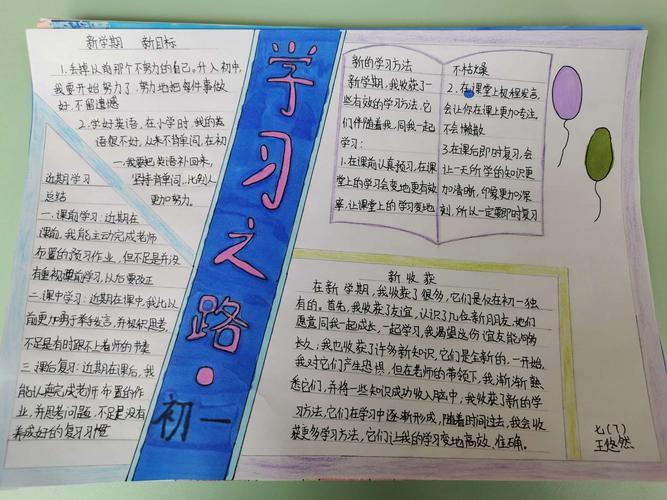 新学期 新目标
1.丢掉从前那个不努力的自己。升入初中,
我要开始努力了,努力地把每件事做
好,不留遗憾
2.学好英语,在小学时,我的英
语很不好,从来不背单词,在初
一我要把英语补回来,
坚持背单词,比别人
更加努力。
近期学习
总结
一.课前学习:近期在
课前,我能主动完成老师
布置的预习作业,但不足是并没
有重视课前学习,以后要改正
二.课中学习:近期在课中,我比以
前更加勇于举手发言,并积极思考,
不足是有时跟不上老师的节奏
三.课后复习:近期在课后,我
能认真完成老师布置的作
业,并思考问题,不足是没有
养成好的复习习惯
学习之路·初一
新的学习方法
新学期,我收获了一
些有效的学习方法,它
们伴随着我,同我一起
学习:
1.在课前认真预习,在课
堂上的学习会变地更有效
率,让课堂上的学习变地
不枯燥
2.在课堂上积极发言,
会让你在课上更加专注,
不会懒散
3.在课后即时复习,会
让一天所学的知识更
加清晰,印象更加深
刻,所以一定要即时复习
新收获
在新学期,我收获了很多,它们是仅在初一独
有的。首先,我收获了友谊,认识了几位新朋友,她们
愿意同我一起成长,一起学习,我渴望这份友谊能够
长久;我也收获了许多新知识,它们是全新的,一开始,
我对它们产生恐惧,但在老师的带领下,我渐渐熟
悉它们,并将一些知识成功收入脑中,我收获了新的学
习方法,它们在学习中逐渐形成,随着时间过去,我会收
获更多学习方法,它们让我的学习变地高效、准确。
七(7)
王悠然